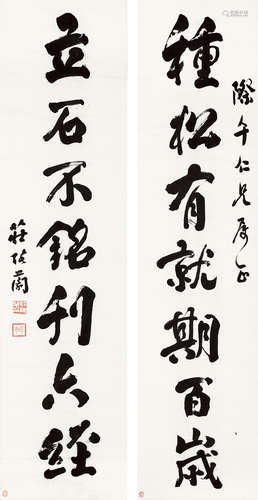 際午仁兄属正
種松有就期百歲
立石不銘刊六經
莊蘊蘭